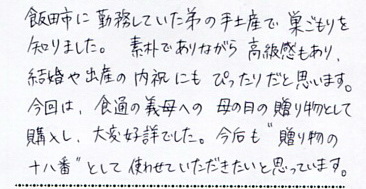 飯田市に勤務していた弟の手土産で巣ごもりを
知りました。素朴でありながら高級感もあり、
結婚や出産の内祝にもぴったりだと思います。
今回は、食通の義母への母の日の贈り物として
購入し、大変好評でした。今後も"贈り物の
十八番"として使わせていただきたいと思っています。